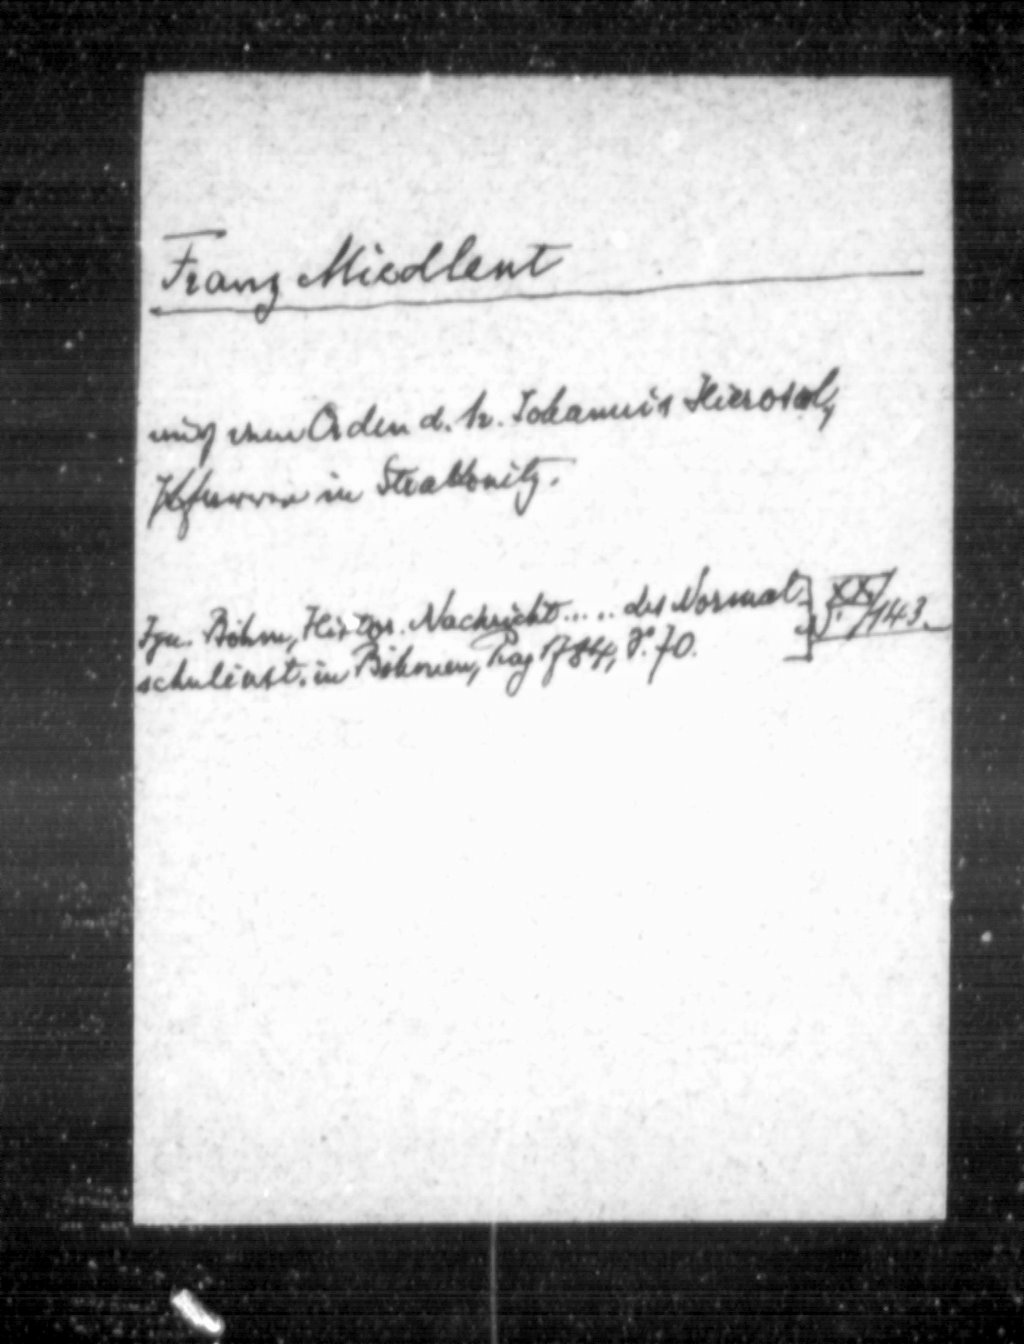 Franz Miedlent
aus dem Orden d. h. Johannis Hierosol,
Pfarrer in Strakonitz.
Ign. Böhm, Histor. Nachricht..... des Normal
schulinst. in Böhmen, Prag 784, S. 70.
XX/143.